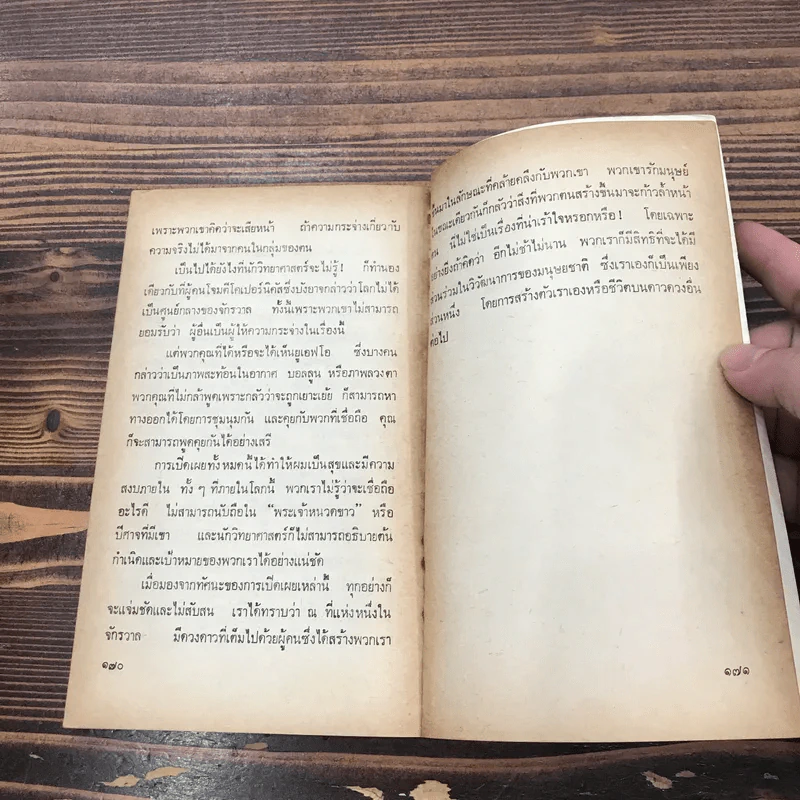 เพราะพวกเขาคิดว่าจะเสียหน้า ถ้าความกระจ่างเกี่ยวกับ
ความจริงไม่ได้มาจากคนในกลุ่มของตน
เป็นไปได้ยังไงที่นักวิทยาศาสตร์จะไม่รู้! ก็ทำนอง
เดียวกับที่ผู้คนโจมตีโคเปอร์นิคัสซึ่งบังอาจกล่าวว่าโลกไม่ได้
เป็นศูนย์กลางของจักรวาล ทั้งนี้เพราะพวกเขาไม่สามารถ
ยอมรับว่า ผู้อื่นเป็นผู้ให้ความกระจ่างในเรื่องนี้
แต่พวกคุณที่ได้หรือจะได้เห็นยูเอฟโอ ซึ่งบางคน
กล่าวว่าเป็นภาพสะท้อนในอากาศ บอลลูน หรือภาพลวงตา
พวกคุณที่ไม่กล้าพูดเพราะกลัวว่าจะถูกเยาะเย้ย ก็สามารถหา
ทางออกได้โดยการชุมนุมกัน และคุยกับพวกที่เชื่อถือ คุณ
ก็จะสามารถพูดคุยกันได้อย่างเสรี
การเปิดเผยทั้งหมดนี้ได้ทำให้ผมเป็นสุขและมีความ
สงบภายใน ทั้ง ๆ ที่ภายในโลกนี้ พวกเราไม่รู้ว่าจะเชื่อถือ
อะไรดี ไม่สามารถนับถือใน “พระเจ้าหนวดขาว” หรือ
ปีศาจที่มีเขา และนักวิทยาศาสตร์ก็ไม่สามารถอธิบายต้น
กำเนิดและเป้าหมายของพวกเราได้อย่างแน่ชัด
เมื่อมองจากทัศนะของการเปิดเผยเหล่านี้ ทุกอย่างก็
จะแจ่มชัดและไม่สับสน เราได้ทราบว่า ณ ที่แห่งหนึ่งใน
จักรวาล มีดวงดาวที่เต็มไปด้วยผู้คนซึ่งได้สร้างพวกเรา
๑๗๐
ขึ้นมาในลักษณะที่คล้ายคลึงกับพวกเขา พวกเขารักมนุษย์
ในขณะเดียวกันก็กลัวว่าสิ่งที่พวกตนสร้างขึ้นมาจะก้าวล้ำหน้า
ตน นี่ไม่ใช่เป็นเรื่องที่น่าเร้าใจหรอกหรือ! โดยเฉพาะ
อย่างยิ่งถ้าคิดว่า อีกไม่ช้าไม่นาน พวกเราก็มีสิทธิที่จะได้มี
ส่วนร่วมในวิวัฒนาการของมนุษยชาติ ซึ่งเราเองก็เป็นเพียง
ส่วนหนึ่ง โดยการสร้างตัวเราเองหรือชีวิตบนดาวดวงอื่น
ต่อไป
๑๗๑